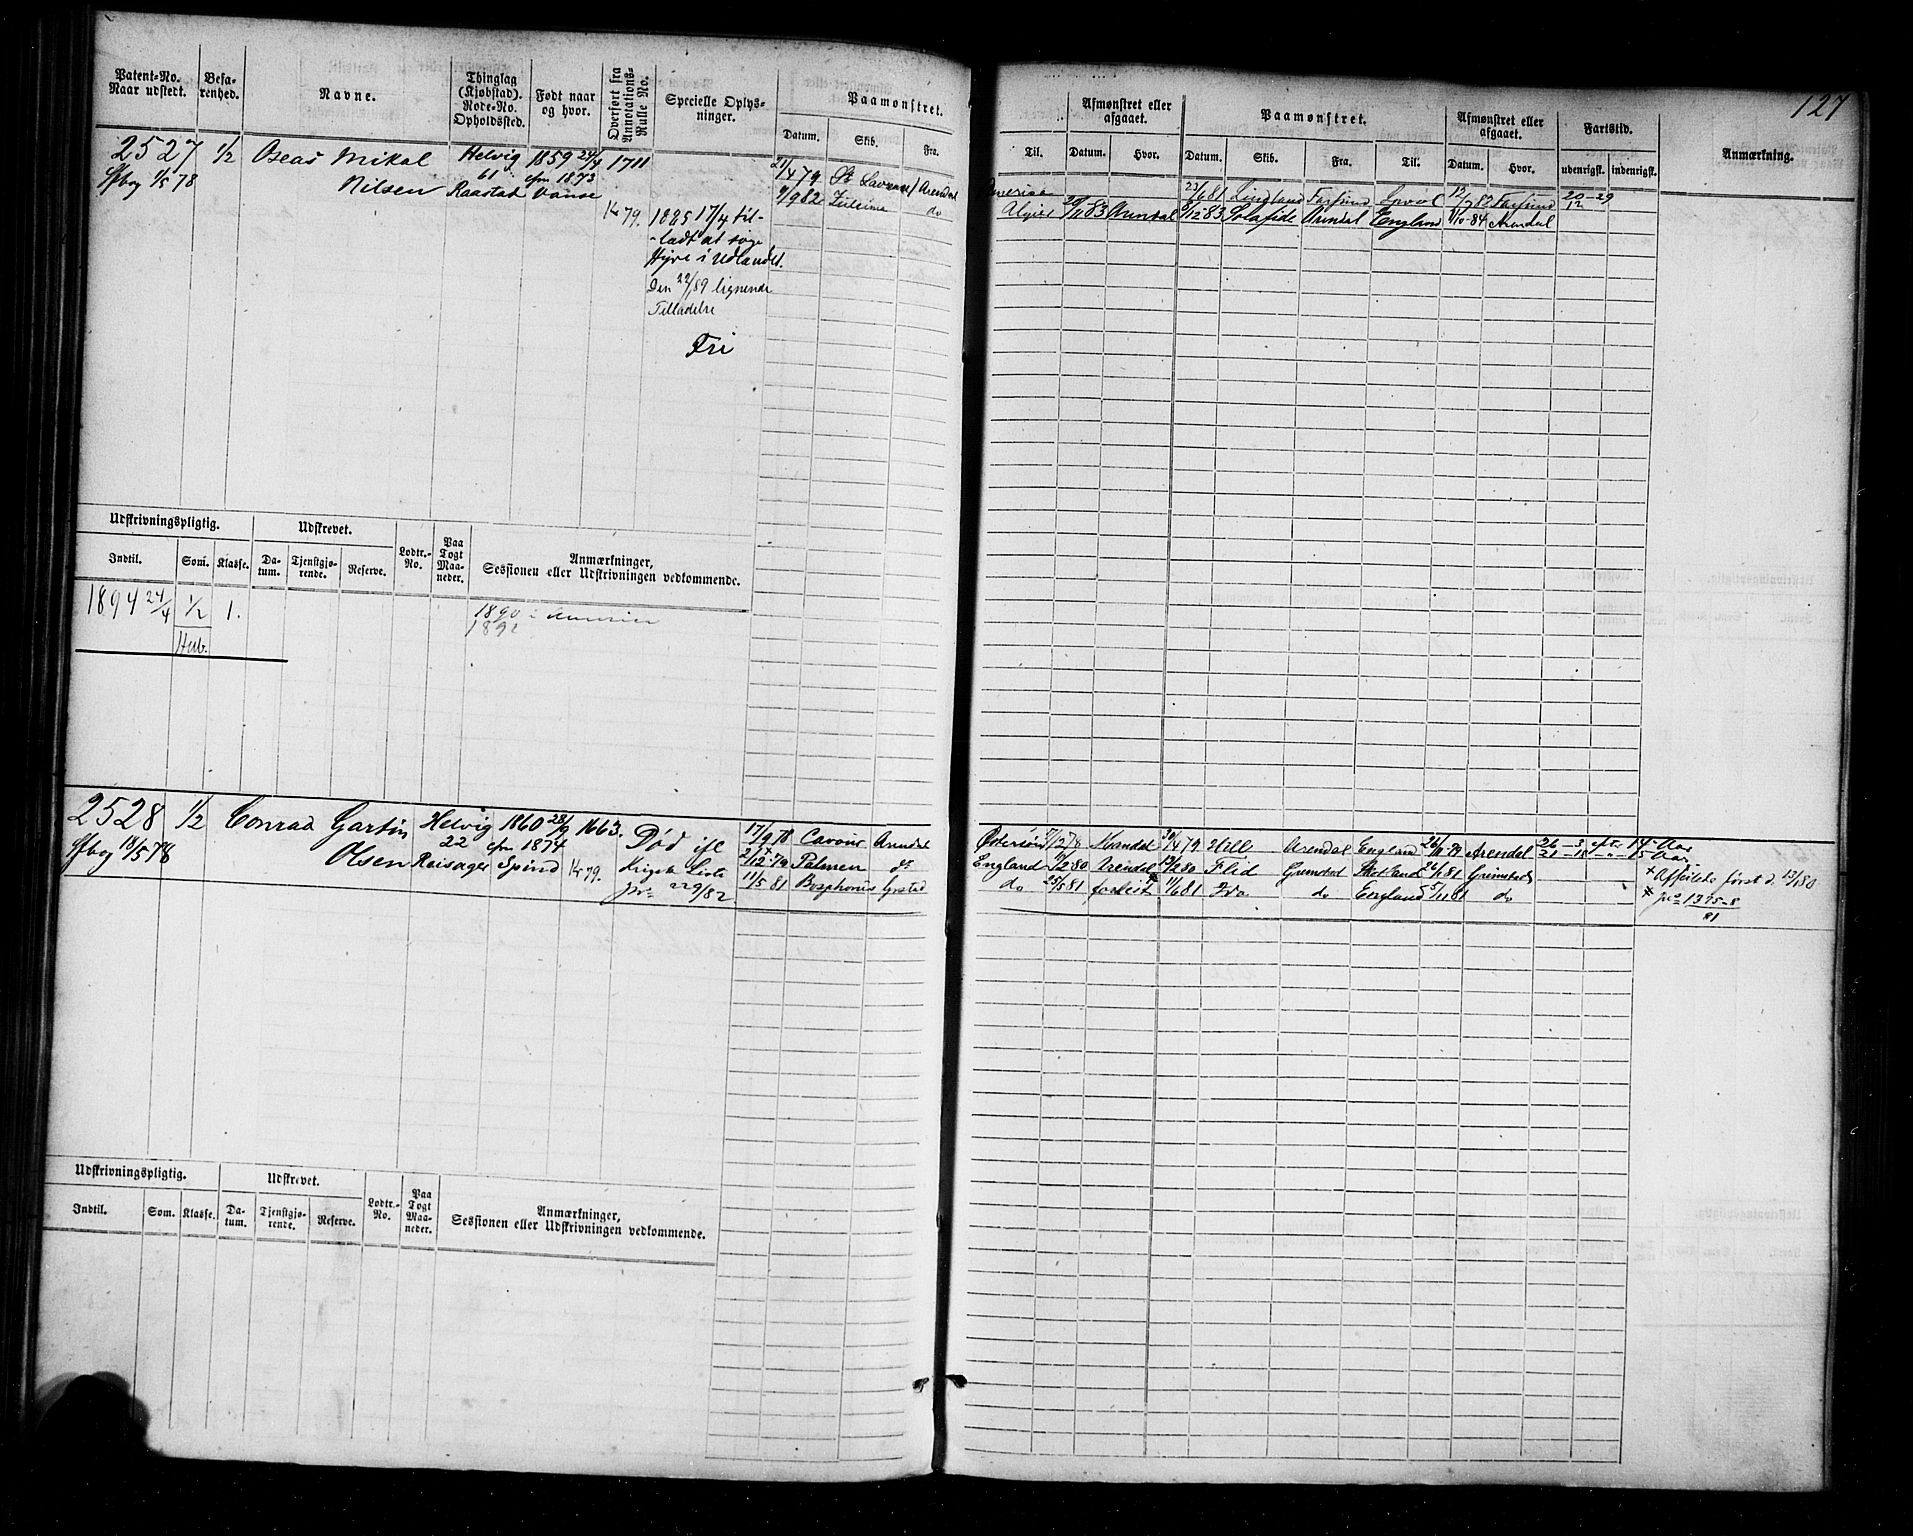 127
Patent-No. Naar udstedt. Befa- renhed. Navne. Thinglag (Kjøbstad). Rode-No. Opholdssted. Født naar og hvor. Overført fra Annotations- Rulle No. Specielle Oplys- ninger. Paamønstret.
Datum. Skib. Fra.
Afmønstret eller afgaaet. Paamønstret. Afmønstret eller afgaaet. Fartstid. Anmærkning.
Til. Datum. Hvor. Datum. Skib. Fra. Til. Datum. Hvor. udenrigst. indenrigst.
2527 1/2 Oseas Mikal Helvig 1859 24/4 1711 21/4 79 Arendal
1/5 78 Nilsen 61 Raastad cfm 1873 Vanse 9/9 82 Zuleima do
Amerika 23/6 81 Lindland Farsund 12/7 82 Farsund 20-29
Algier 83 Arendal 8/12 83 Arendal England 1/10-84 Arendal 12
79. 1885 17/4 til-
ladt at søge
Hyre i Udlandet.
Den 22/ 89 lignende
Tilladelse
Fri
Udskrivningspligtig. Udskrevet. Lodtr.- No. Paa Togt Maa- neder. Anmærkninger, Sessionen eller Udskrivningen vedkommende.
Indtil. Som. Klasse. Da- tum. Tjenstgjø- rende. Reserve.
1894 24/4 1/2 1. 1890 i
1892
2528 1/2 Conrad Gartin Helvig 1860 28/9 1663. Død ifl. 17/9 78 Cavour Arendal
18/5 78 Olsen 22 Raisager cfm 1874 Spind 79. Liste 2/12 79 Palmen do
22 9/82 11/5 81 Bosphorus Grstad
Østersøen 12 78 Arendal 30/4 79 Arendal England 26/11-79 Arendal 26-3 efter 14 Aar
England 2 80 Arendal 13/2 80 Flid Grimstad Skotland 24/1 81 Grimstad 21-18 -"- 15 Aar.
do 25/5 81 forleit 11/6 81 Ida do England 5/11 81 do
+ Affeilede først d. 13/1 80
1375-8
81
Udskrivningspligtig. Udskrevet. Lodtr.- No. Paa Togt Maa- neder. Anmærkninger, Sessionen eller Udskrivningen vedkommende.
Indtil. Som. Klasse. Da- tum. Tjenstgjø- rende. Reserve.